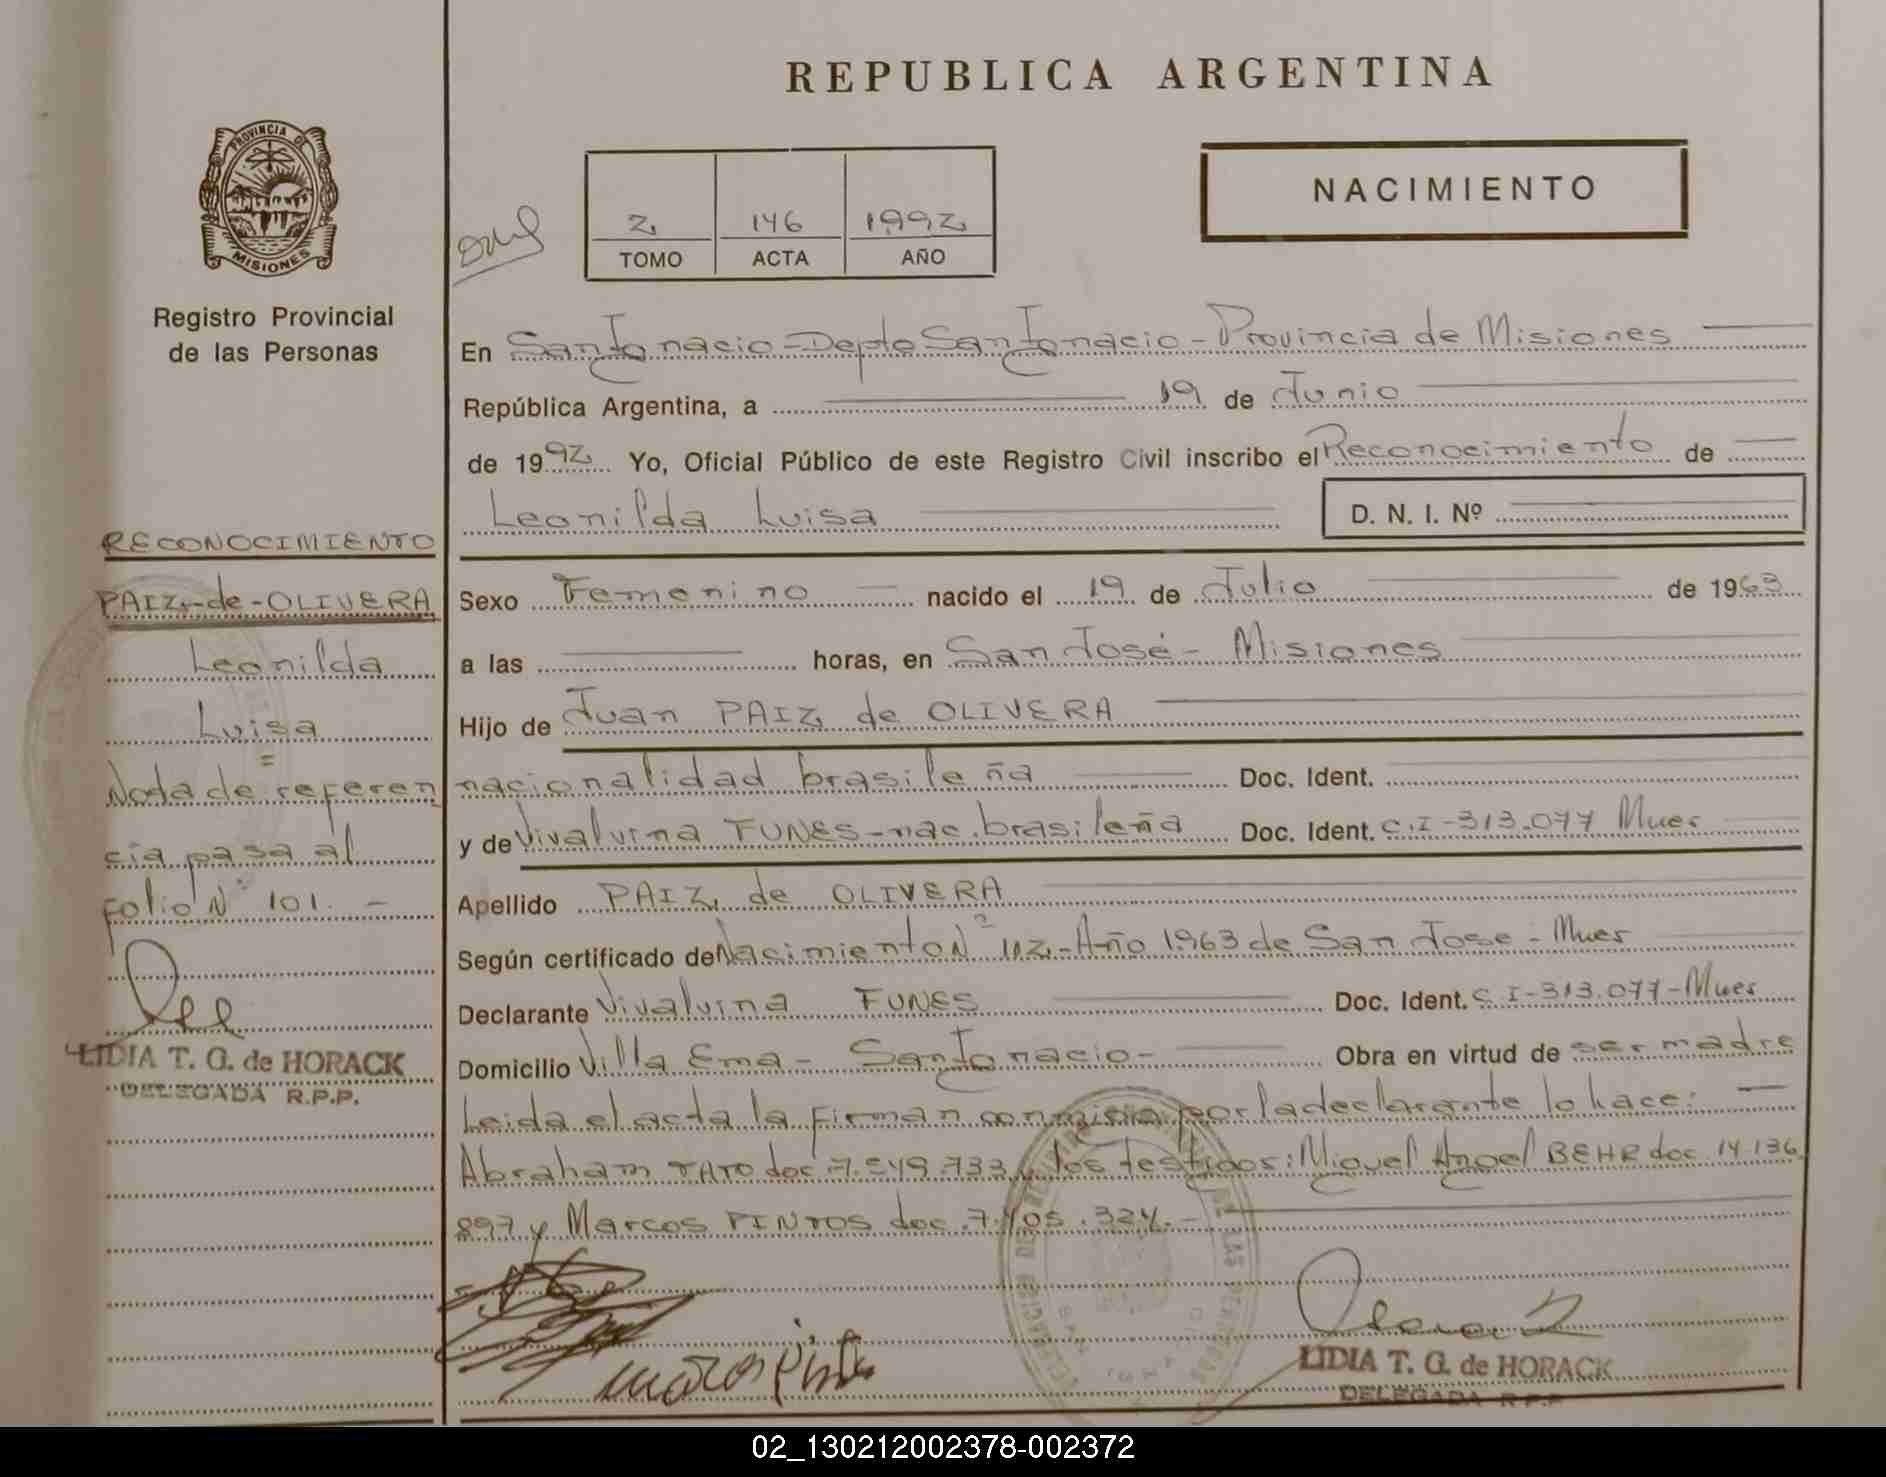 REPUBLICA ARGENTINA
PROVINCIA DE
MISIONES
Registro Provincial
de las Personas
NACIMIENTO
2 146 1992
TOMO ACTA AÑO
En San Ignacio - Depto San Ignacio - Provincia de Misiones
República Argentina, a 19 de Junio
de 1992 Yo, Oficial Público de este Registro Civil inscribo el Reconocimiento de
Leonilda Luisa D. N. I. Nº
RECONOCIMIENTO
PAIZ-de-OLIVERA
Leonilda
Luisa
=
Nota de referen
cia pasa al
folio Nº 101. -
LIDIA T. G. de HORACK
DELEGADA R.P.P.
Sexo Femenino nacido el 19 de Julio de 1963
a las horas, en San José - Misiones
Hijo de Juan PAIZ de OLIVERA
nacionalidad brasileña Doc. Ident.
y de Vivalvina FUNES - nac. brasileña Doc. Ident. C.I-313.077 Mnes
Apellido PAIZ de OLIVERA
Según certificado de Nacimiento Nº 112 - Año 1963 de San Jose - Mnes
Declarante Vivalvina FUNES Doc. Ident. C.I-313.077-Mnes
Domicilio Villa Ema - San Ignacio - Obra en virtud de ser madre
Leida el acta la firman conmigo por la declarante lo hace:
Abraham TATO doc. 7.549.733 y los testigos: Miguel Angel BEHR doc. 14.136.
897 y Marcos PINTOS doc. 7.405.324.-
Marcos Pintos
LIDIA T. G. de HORACK
DELEGADA R.P.P
02_130212002378-002372